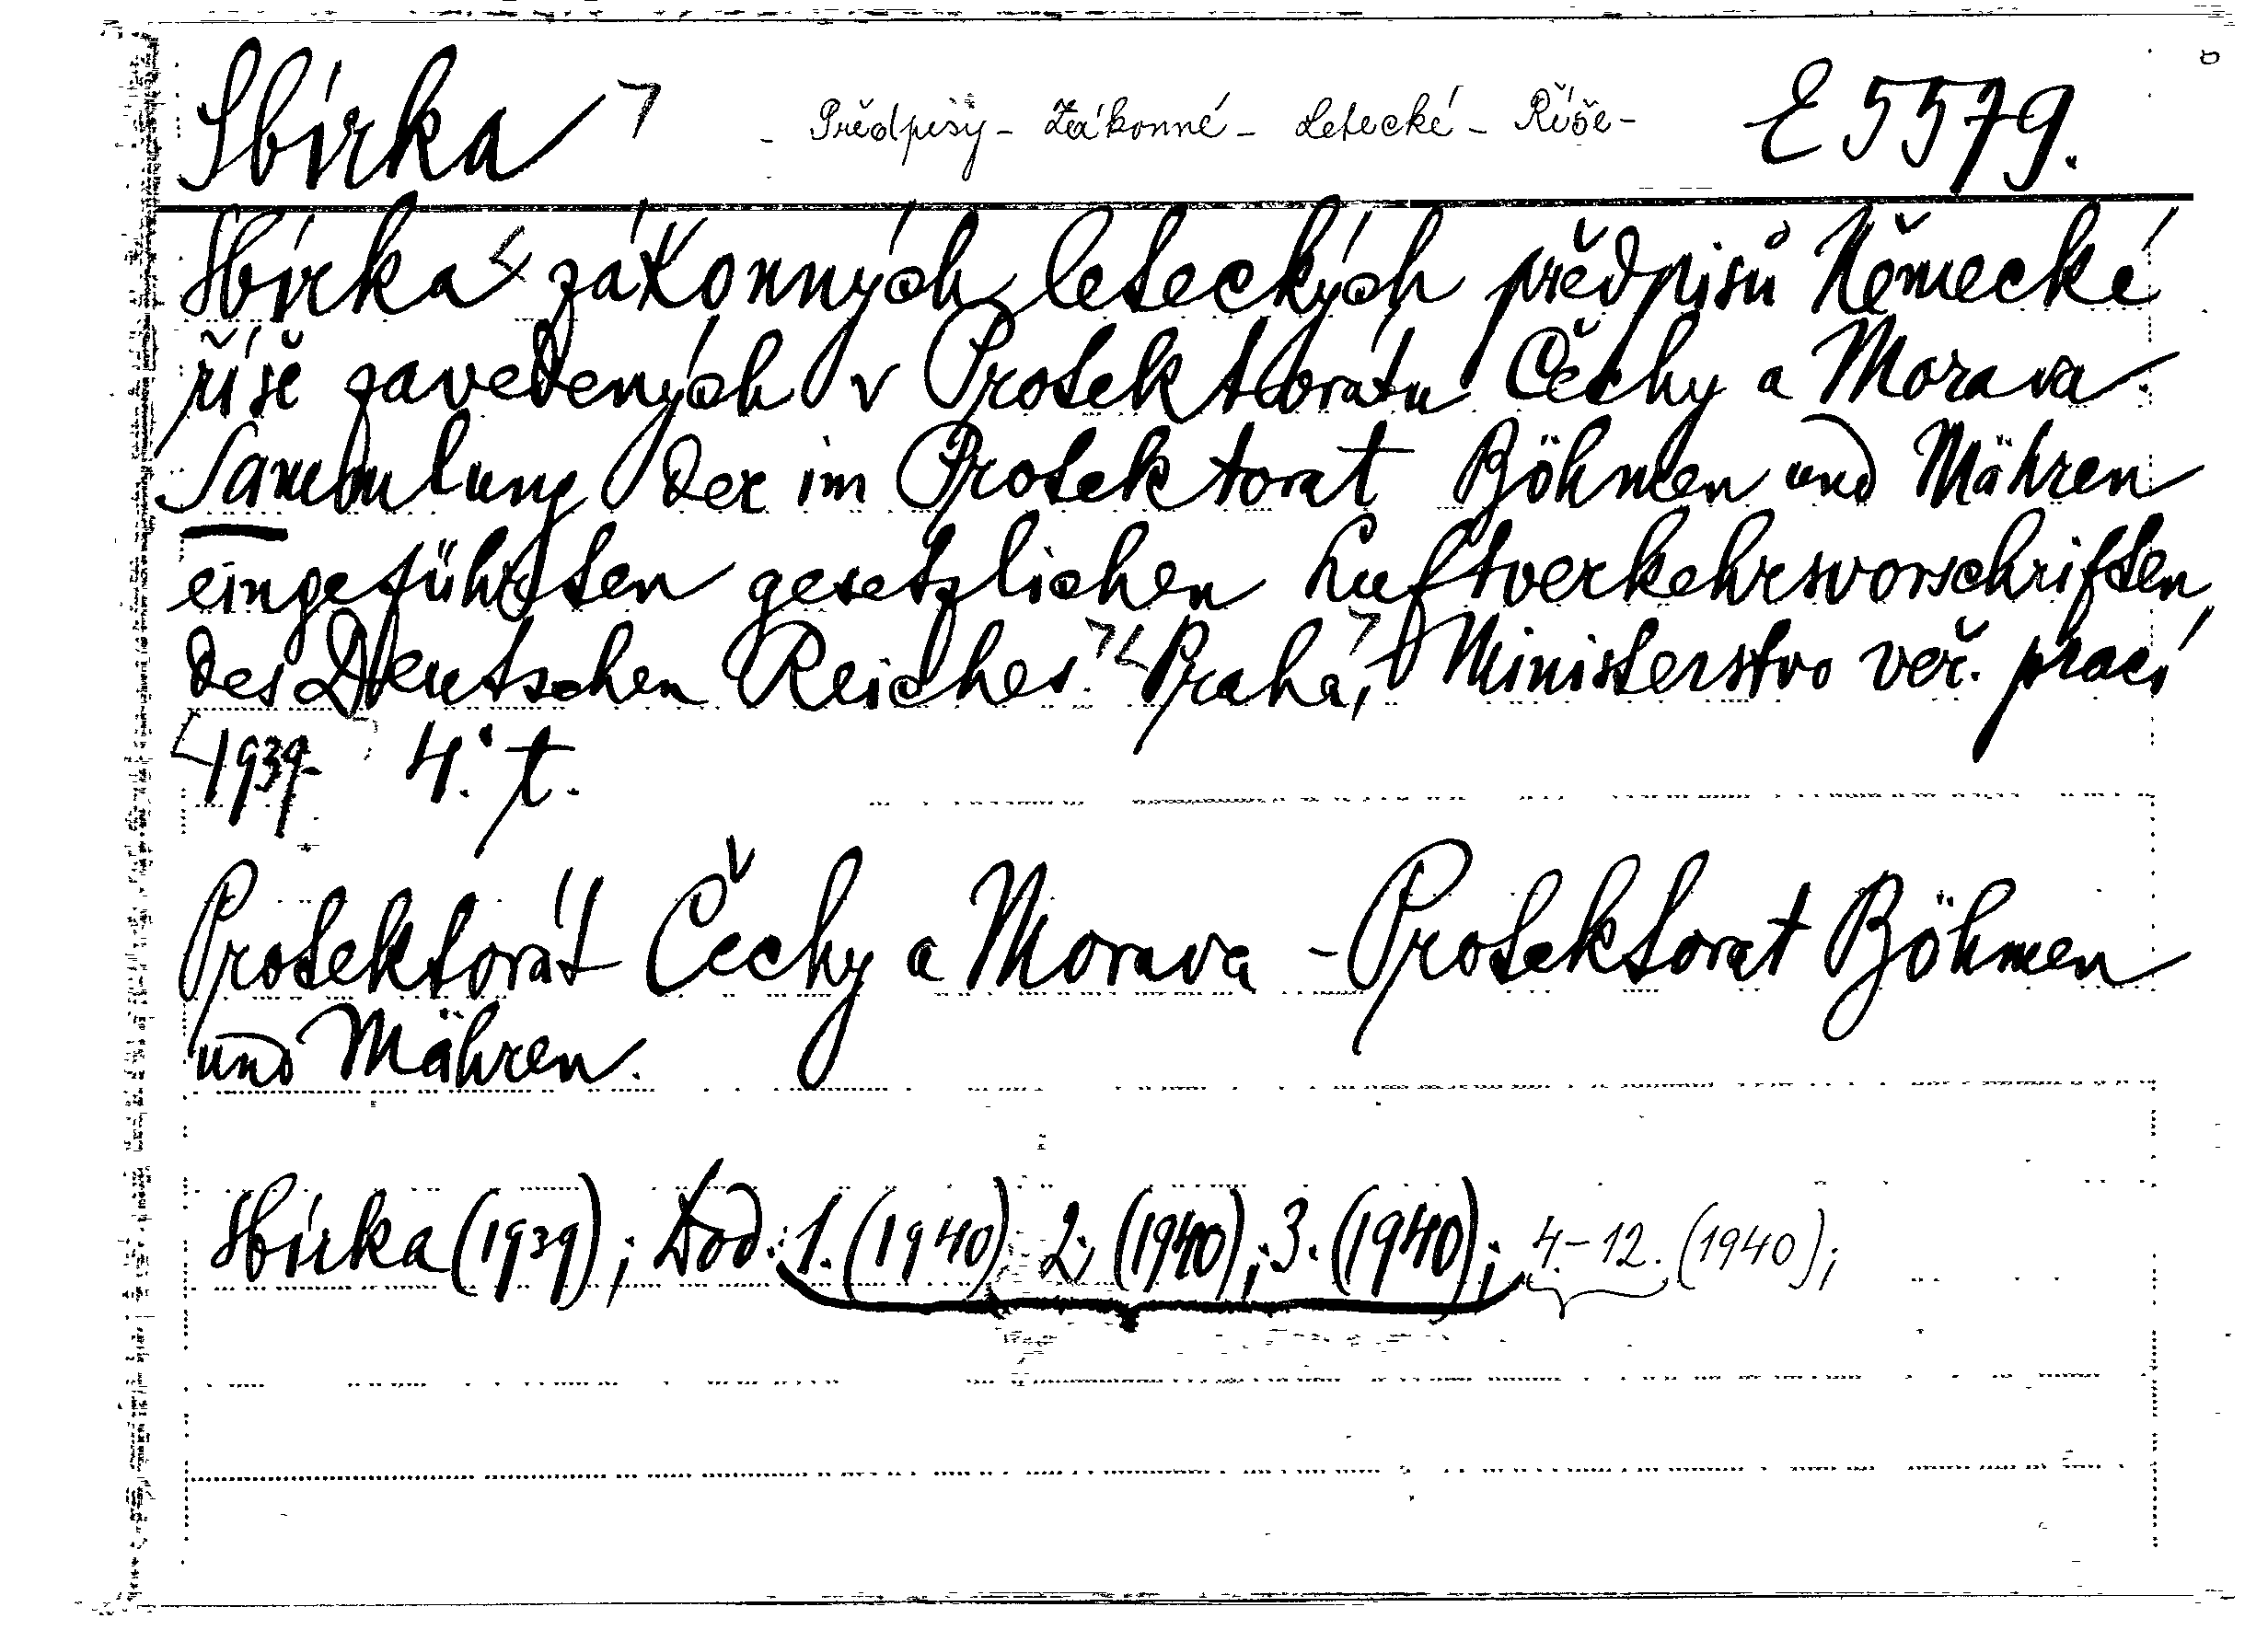 Sbírka - Předpisy - Zákonné - Letecké - Říše - E 5579.
Sbírka zákonných leteckých předpisů Německé
říše zavedených v Protektorátu Čechy a Morava.
Sammlung der im Protektorat Böhmen und Mähren
eingeführten gesetzlichen Luftverkehrsvorschriften
des Deutschen Reiches. Praha, Ministerstvo veř. prací
1939. 4.° t.
Protektorát Čechy a Morava - Protektorat Böhmen
und Mähren.
Sbírka (1939); Dod. 1. (1940); 2. (1940); 3. (1940); 4.-12. (1940);